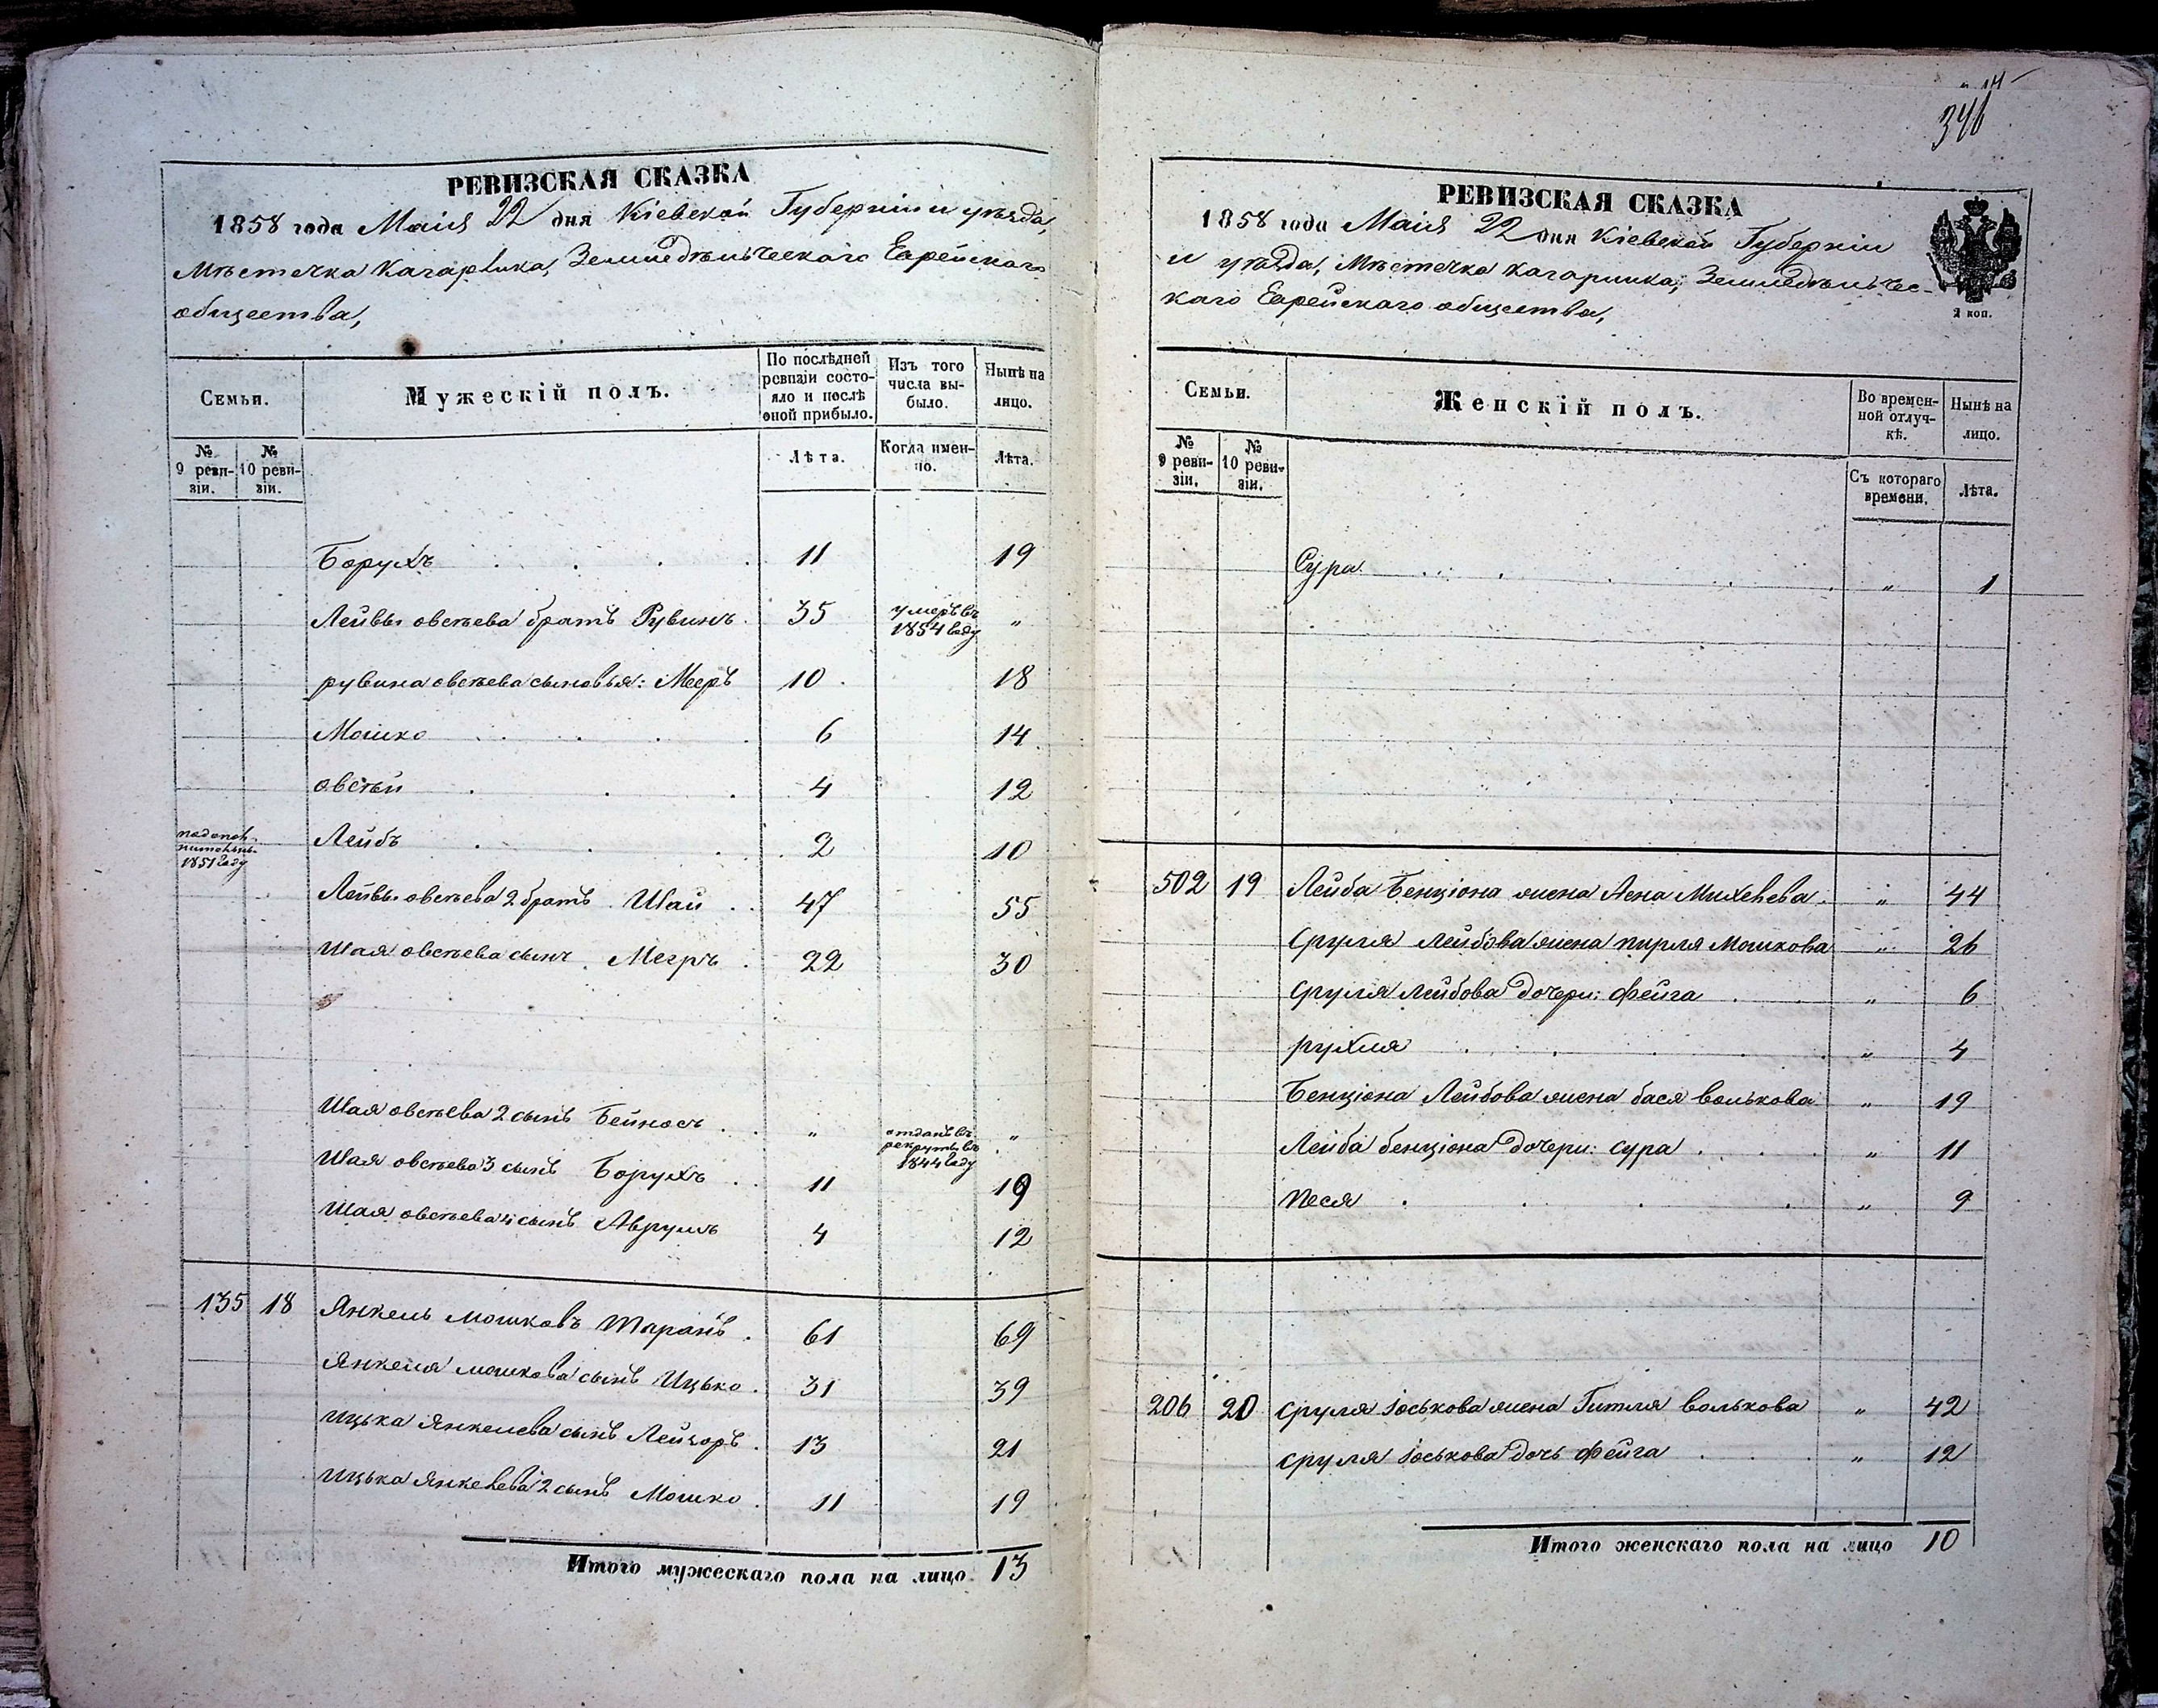 346
РЕВИЗСКАЯ СКАЗКА
1858 года Маія 22 дня Кіевской Губерніи и уѣзда,
Мѣстечка Кагарлика, Земледѣльческаго Еврейскаго
общества,
Семьи.
Мужескій полъ.
По послѣдней ревизіи состояло и послѣ оной прибыло.
Изъ того числа выбыло.
Нынѣ на лицо.
№ 9 ревизіи.
№ 10 ревизіи.
Лѣта.
Когда именно.
Лѣта.
Борухъ 11 19
Лейбы овсѣева братъ Рувинъ 35 умеръ въ 1854 году "
рувина овсѣева сыновья: Мееръ 10 18
Мошко 6 14
овсѣй 4 12
1851 году Лейбъ 2 10
Лейбы овсѣева 2 братъ Шаи 47 55
Шая овсѣева сынъ Мееръ 22 30
Шая овсѣева 2 сынъ Бейносъ " отданъ въ рекруты въ 1844 году "
Шая овсѣева 3 сынъ Борухъ 11 19
Шая овсѣева 4 сынъ Аврумъ 4 12
135 18 Янкель мошковъ Таранъ 61 69
Янкеля мошкова сынъ Ицько 31 39
ицька Янкелева сынъ Лейзоръ 13 21
ицька Янкелева 2 сынъ Мошко 11 19
Итого мужескаго пола на лицо 13
РЕВИЗСКАЯ СКАЗКА
1858 года Маія 22 дня Кіевской Губерніи
и уѣзда, Мѣстечка Кагарлика, Земледѣльчес-
каго Еврейскаго общества,
2 коп.
Семьи.
Женскій полъ.
Во временной отлучкѣ.
Нынѣ на лицо.
№ 9 ревизіи.
№ 10 ревизіи.
Съ котораго времени.
Лѣта.
Сура " 1
502 19 Лейба Бенціона жена Михелева " 44
сруля лейбова жена пирля Мошкова " 26
сруля лейбова дочери: фейга " 6
рухля " 4
Бенціона Лейбова жена бася волькова " 19
Лейба бенціона дочери: сура " 11
песя " 9
206 20 сруля іоськова жена Гитля волькова " 42
сруля іоськова дочь фейга " 12
Итого женскаго пола на лицо 10